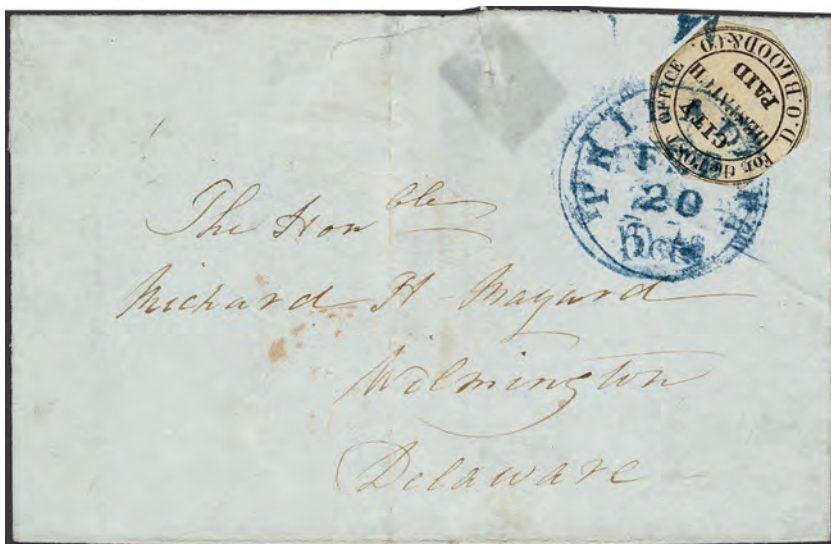 D.O. BLOOD & CO.
CITY
DESPATCH
PAID
FOR THE POST OFFICE
20
5 cts
The Hon ble
Richard H - Bayard
Wilmington
Delaware -